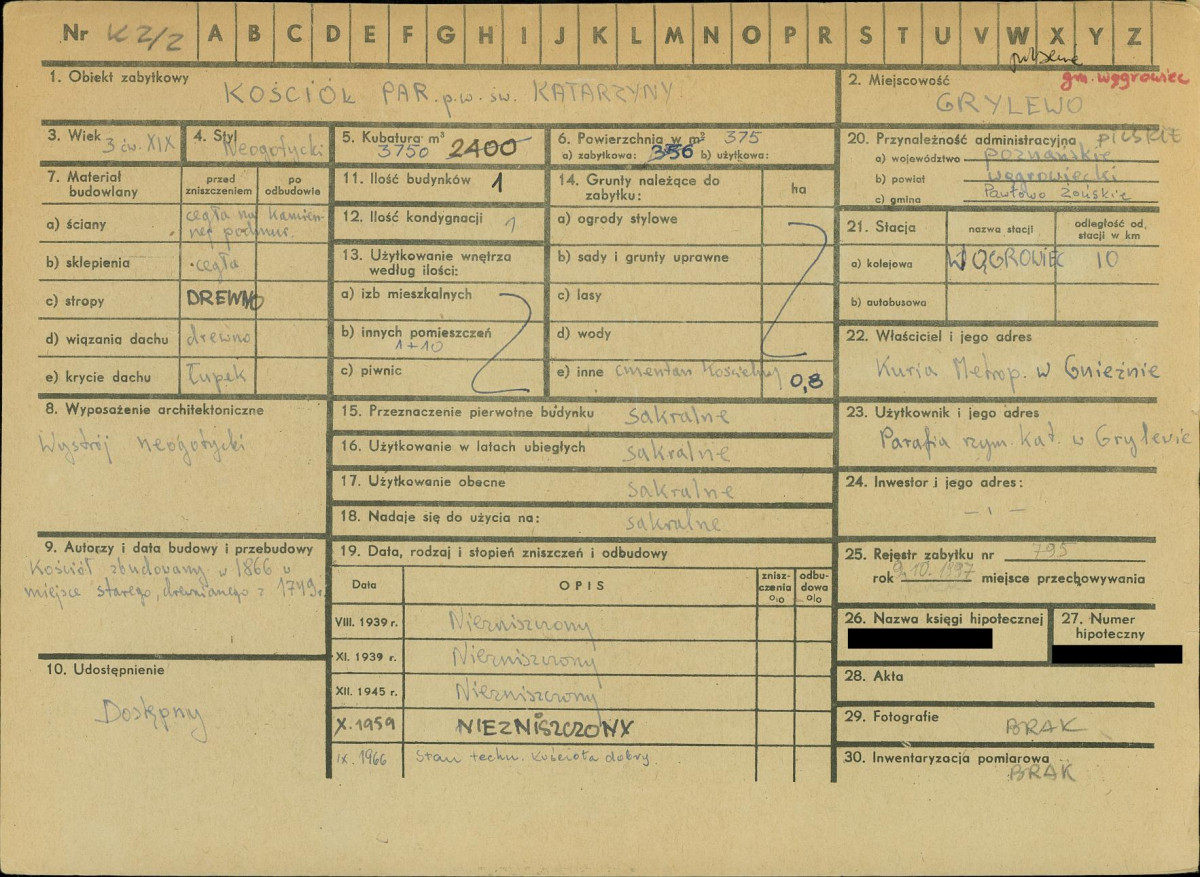 Nr KZ/2 A B C D E F G H I J K L M N O P R S T U V W X Y Z
gm. wągrowiec
1. Obiekt zabytkowy
KOŚCIÓŁ PAR. p.w. św. KATARZYNY
2. Miejscowość
GRYLEWO
3. Wiek
3 ćw. XIX
4. Styl
Neogotycki
5. Kubatura m³
3750 2400
6. Powierzchnia w m³ 375
a) zabytkowa: 356 b) użytkowa:
20. Przynależność administracyjna pilskie
a) województwo poznańskie
b) powiat wągrowiecki
c) gmina Pawłowo Żońskie
7. Materiał budowlany
przed zniszczeniem
po odbudowie
a) ściany cegła na kamiennej podmur.
b) sklepienia cegła
c) stropy DREWNO
d) wiązania dachu drewno
e) krycie dachu Łupek
11. Ilość budynków 1
12. Ilość kondygnacji 1
13. Użytkowanie wnętrza według ilości:
a) izb mieszkalnych
b) innych pomieszczeń
1+10
c) piwnic
14. Grunty należące do zabytku:
ha
a) ogrody stylowe
b) sady i grunty uprawne
c) lasy
d) wody
e) inne cmentarz Kościelny 0,8
21. Stacja
nazwa stacji
odległość od stacji w km
a) kolejowa WĄGROWIEC 10
b) autobusowa
22. Właściciel i jego adres
Kuria Metrop. w Gnieźnie
8. Wyposażenie architektoniczne
Wystrój neogotycki
15. Przeznaczenie pierwotne budynku sakralne
16. Użytkowanie w latach ubiegłych sakralne
17. Użytkowanie obecne sakralne
18. Nadaje się do użycia na: sakralne
23. Użytkownik i jego adres
Parafia rzym. kat. w Grylewie
24. Inwestor i jego adres:
9. Autorzy i data budowy i przebudowy
Kościół zbudowany w 1866 w
miejsce starego, drewnianego z 1749r.
19. Data, rodzaj i stopień zniszczeń i odbudowy
Data
OPIS
zniszczenia %
odbudowa %
VIII. 1939 r. Niezniszczony
XI. 1939 r. Niezniszczony
XII. 1945 r. Niezniszczony
X. 1959 NIEZNISZCZONY
IX. 1966 Stan techn. kościoła dobry.
25. Rejestr zabytku nr 795
rok 9.10.1997 miejsce przechowywania
26. Nazwa księgi hipotecznej
27. Numer hipoteczny
10. Udostępnienie
Dostępny
28. Akta
29. Fotografie
BRAK
30. Inwentaryzacja pomiarowa
BRAK